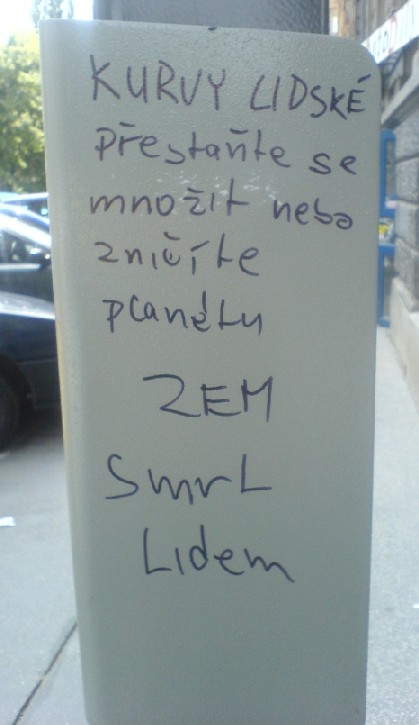 KURVY LIDSKÉ
přestaňte se
množit nebo
zničíte
planétu
ZEM
Smrt
Lidem